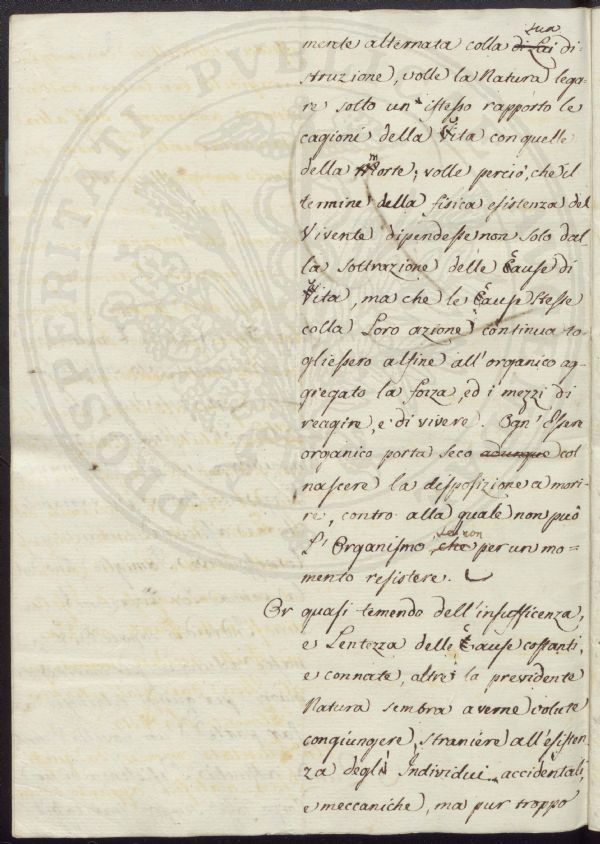 sua
mente alternata colla di Lui di-
struzione, volle la Natura lega-
re sotto un' istesso rapporto le
cagioni della Vita con quelle
della morte; volle perciò, che il
termine della fisica esistenza del
Vivente dipendesse non solo dal
la sottrazione delle Cause di
Vita, ma che le Cause stesse
colla Loro azione continua to-
gliessero alfine all'organico ag-
gregato la forza, ed i mezzi di
reagire, e di vivere. Ogn' Essere
organico porta seco adunque col
nascere la disposizione a mori-
re, contro alla quale non può
se non
L'Organismo che per un mo=
mento resistere.
Or quasi temendo dell'insufficenza,
e Lentezza delle Cause costanti,
e connate, altre la previdente
Natura sembra averne volute
congiungere, straniere all'esisten-
za degli Individui, accidentali,
e meccaniche, ma pur troppo
PROSPERITATI PUBLICAE